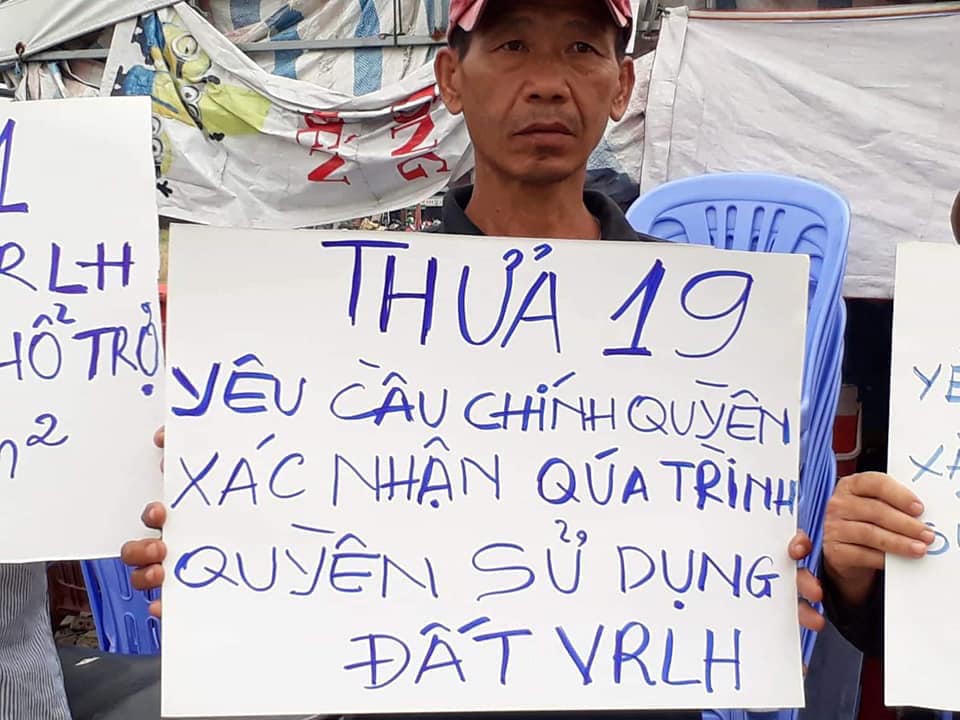 1
RLH
HỔ TRỢ
m²
THỬA 19
YÊU CẦU CHÍNH QUYỀN
XÁC NHẬN QÚA TRÌNH
QUYỀN SỬ DỤNG
ĐẤT VRLH
YÊ
XÁ